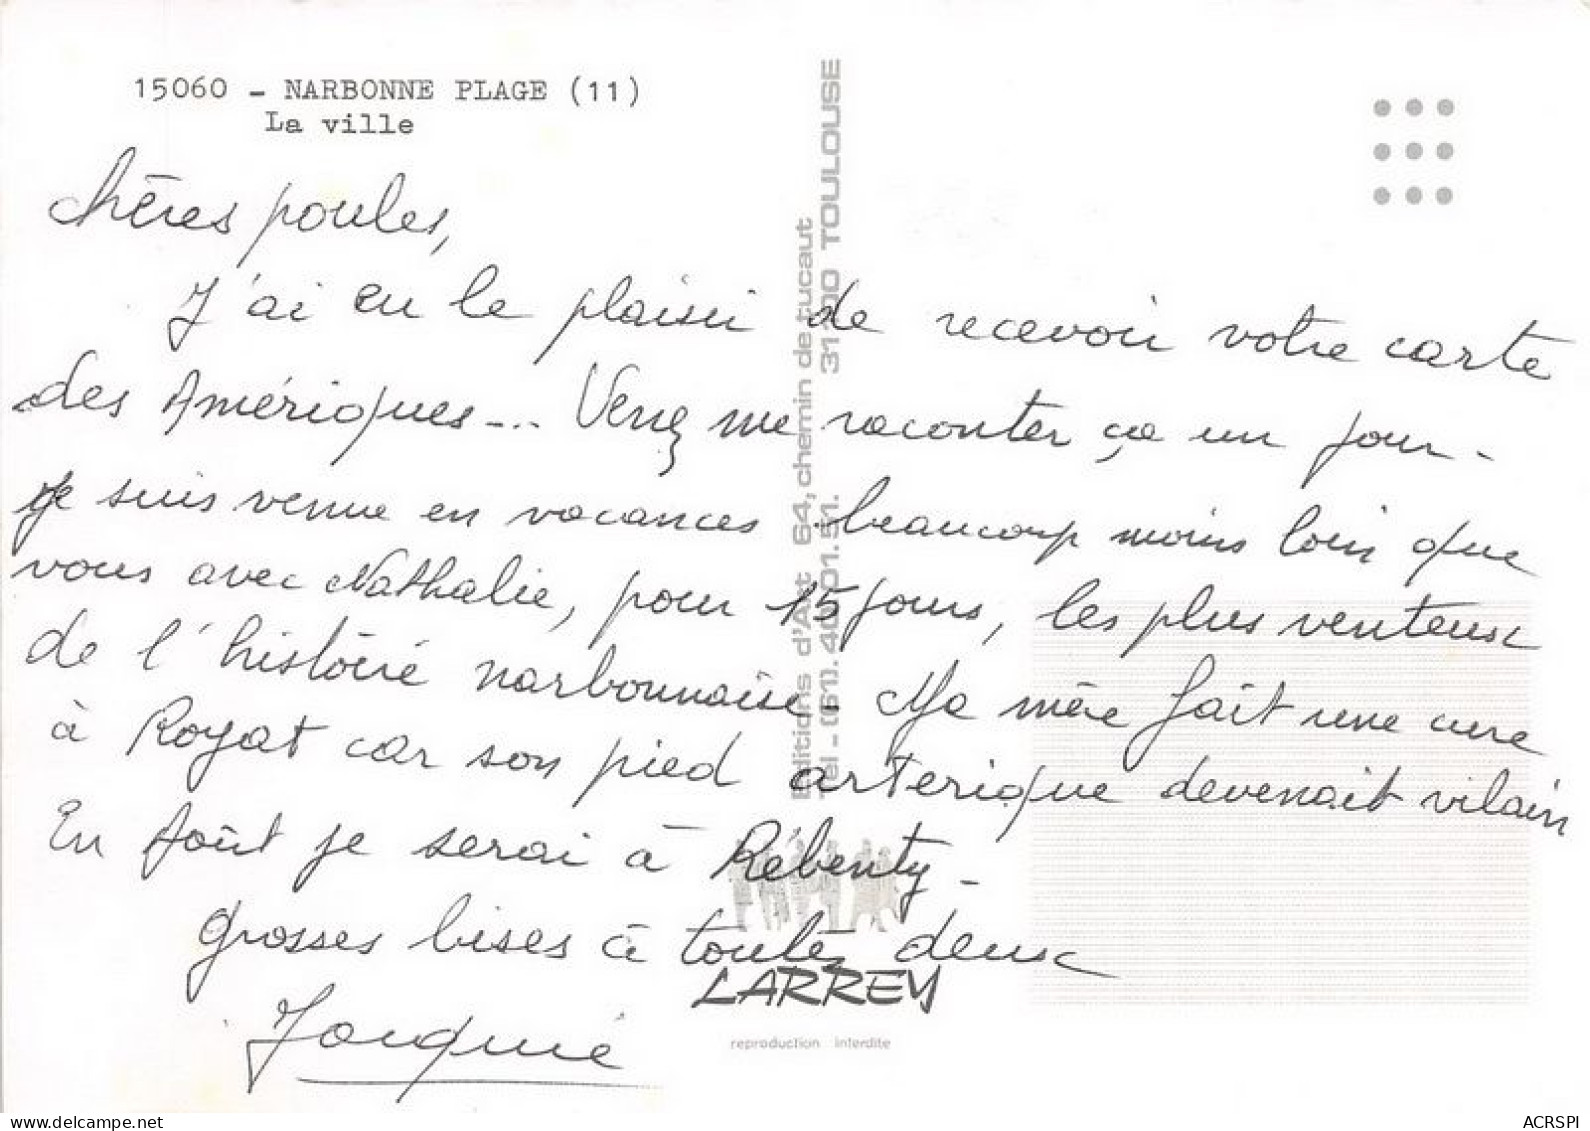 15060 - NARBONNE PLAGE (11)
La ville
Chères poules,
J'ai eu le plaisir de recevoir votre carte
des Amériques... Venez me raconter ça un jour-
Je suis venue en vacances beaucoup moins loin que
vous avec Nathalie, pour 15 jours, les plus venteux
de l'histoire narbonnaise. Ma mère fait une cure
à Royat car son pied arterique devenait vilain
En Août je serai à Rébenty-
Grosses bises à toutes deux
Jacquie
Editions d'Art 64, chemin de tucaut
Tel - (61). 40.01.51. 31300 TOULOUSE
LARREY
reproduction interdite
delcampe.net
ACRSPI